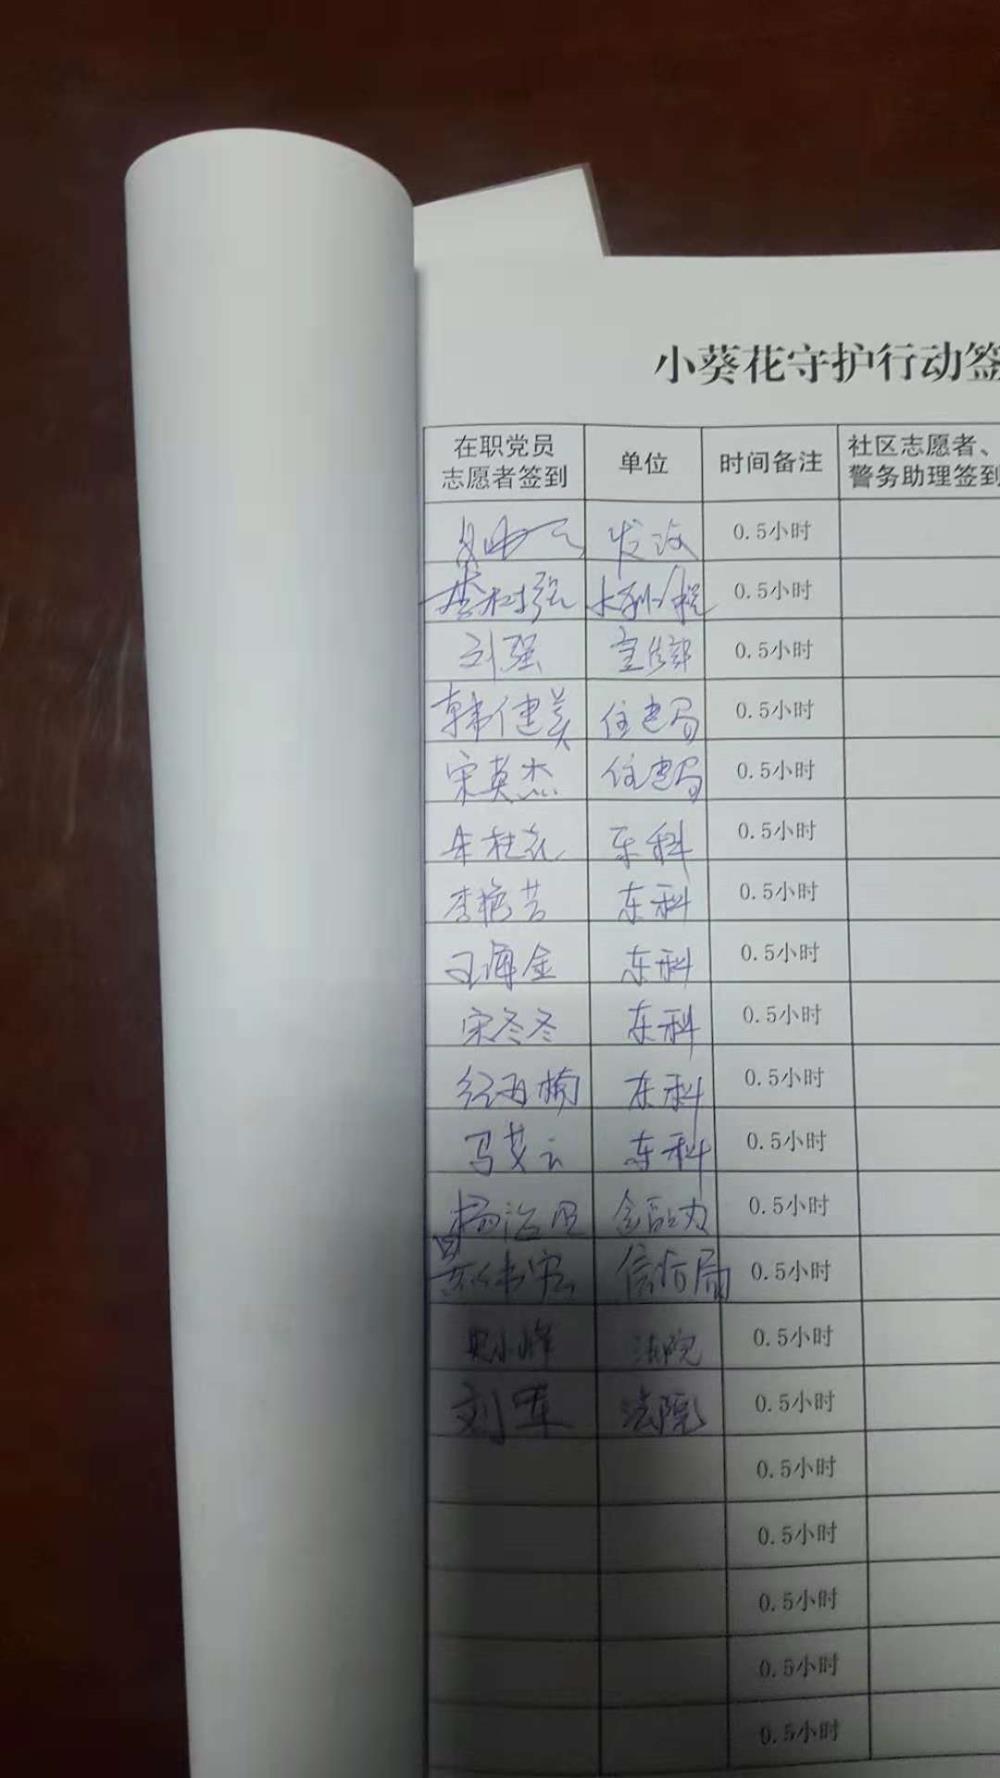 小葵花守护行动签
在职党员 志愿者签到 单位 时间备注 社区志愿者、 警务助理签到
发改 0.5小时
李树强 0.5小时
刘强 宣传部 0.5小时
韩健美 住建局 0.5小时
宋英杰 住建局 0.5小时
朱桂花 东科 0.5小时
李艳芳 东科 0.5小时
王海金 东科 0.5小时
宋冬冬 东科 0.5小时
东科 0.5小时
马艾云 东科 0.5小时
杨治国 金融办 0.5小时
信访局 0.5小时
史小峰 法院 0.5小时
刘军 法院 0.5小时
0.5小时
0.5小时
0.5小时
0.5小时
0.5小时